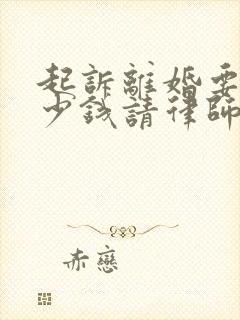 起訴離婚要
少錢請律師
赤戀